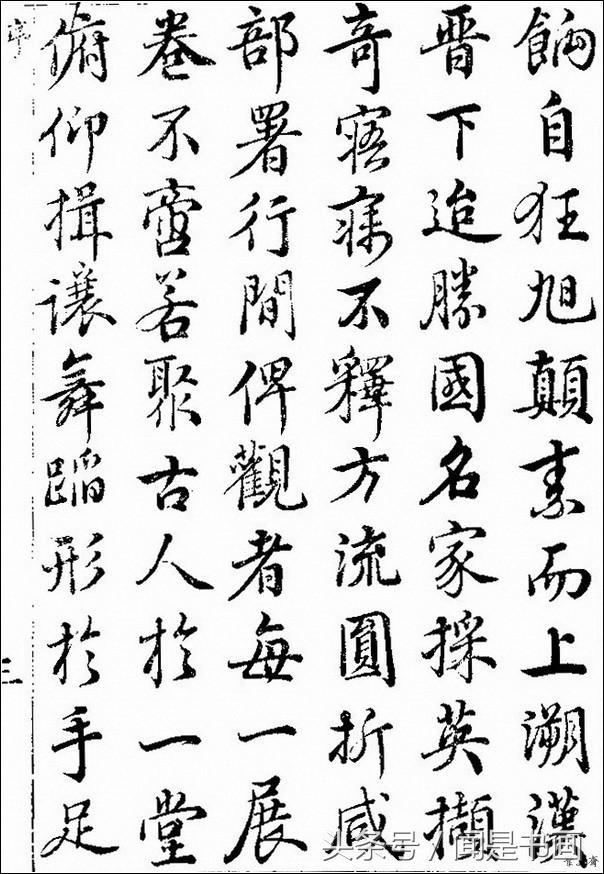 餉自狂旭顛素而上溯漢
晋下迨勝國名家採英擷
奇寤寐不釋方流圓折咸
部署行間俾觀者每一展
卷不啻若聚古人於一堂
俯仰揖讓舞蹈形於手足
序
三
头条号/闻是书画